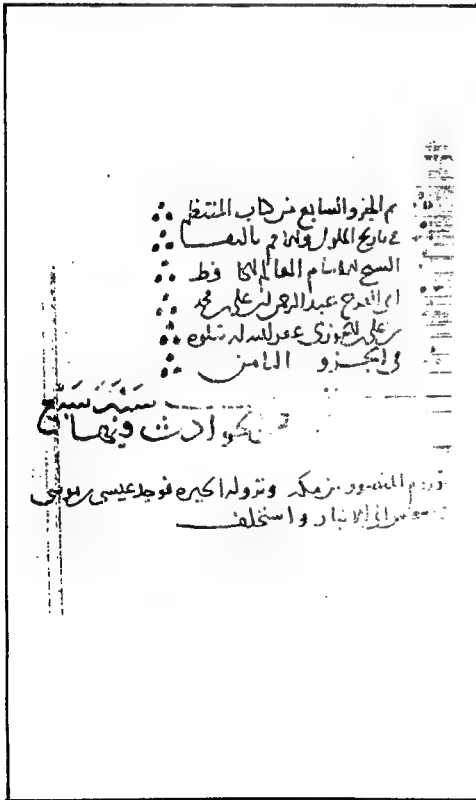 تم الجزو السابع من كتاب المنتظم
في تاريخ الملوك والامم تاليف
الشيخ الامام العالم الحافظ
ابي الفرج عبد الرحمن بن علي بن محمد
بن علي الجوزي غفر الله له يتلوه
في الجزو الثامن
سنة سبع
فمن الحوادث فيها
قدوم المنصور من مكة ونزوله الحيره فوجد عيسى بن موسى
الى الانبار واستخلف